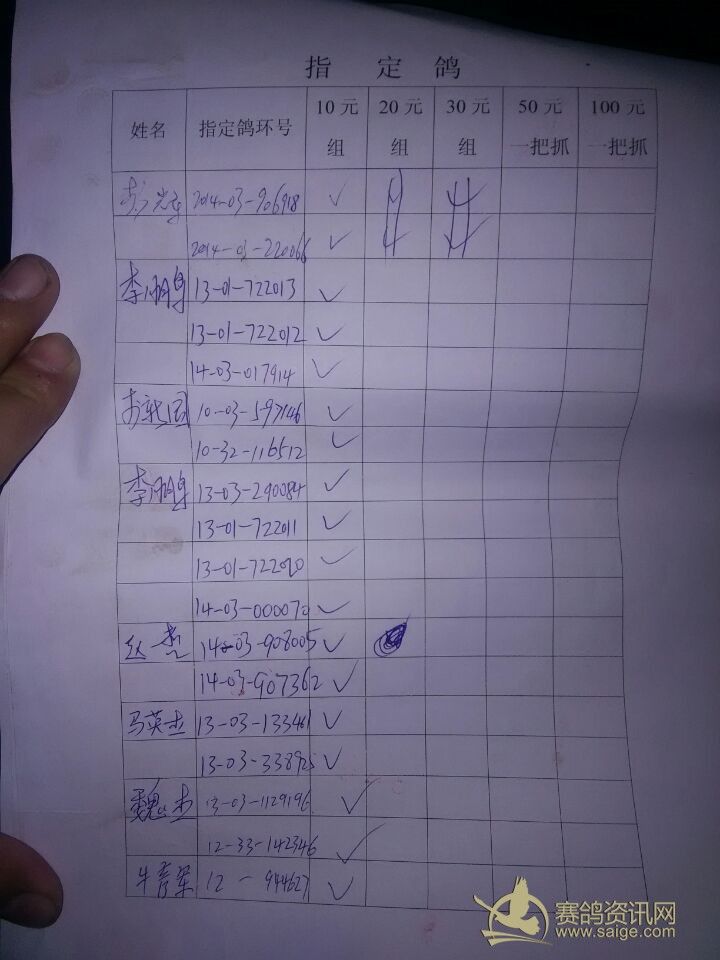 指 定 鸽
姓名 指定鸽环号 10元组 20元组 30元组 50元一把抓 100元一把抓
2014-03-906918 ✓
2014-03-220066 ✓
李鹏 13-01-722013 ✓
13-01-722012 ✓
14-03-017914 ✓
10-03-597146 ✓
10-32-116512 ✓
李鹏 13-03-290084 ✓
13-01-722011 ✓
13-01-722020 ✓
14-03-000070 ✓
赵杰 14-03-908005 ✓
14-03-907362 ✓
马英杰 13-03-133461 ✓
13-03-338925 ✓
魏杰 13-03-1129196 ✓
12-33-142346 ✓
牛 12-944627 ✓
赛鸽资讯网
www.saige.com